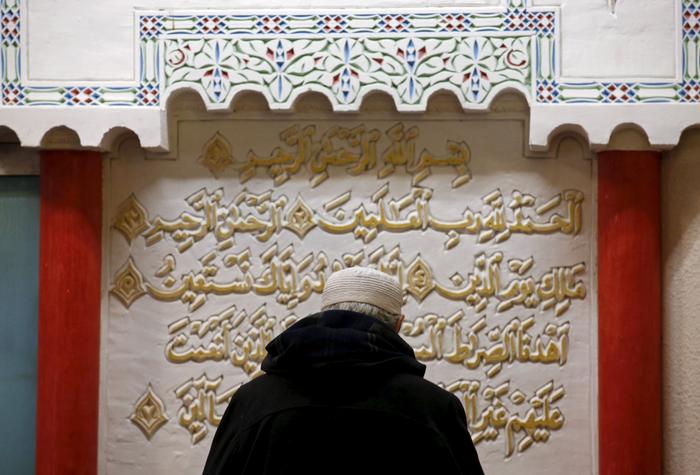 بِسْمِ اللَّهِ الرَّحْمَٰنِ الرَّحِيمِ
الْحَمْدُ لِلَّهِ رَبِّ الْعَالَمِينَ ٢ الرَّحْمَٰنِ الرَّحِيمِ
مَالِكِ يَوْمِ الدِّينِ وَإِيَّاكَ نَسْتَعِينُ ٥
اهْدِنَا الصِّرَاطَ أَنْعَمْتَ
عَلَيْهِمْ غَيْرِ ٧